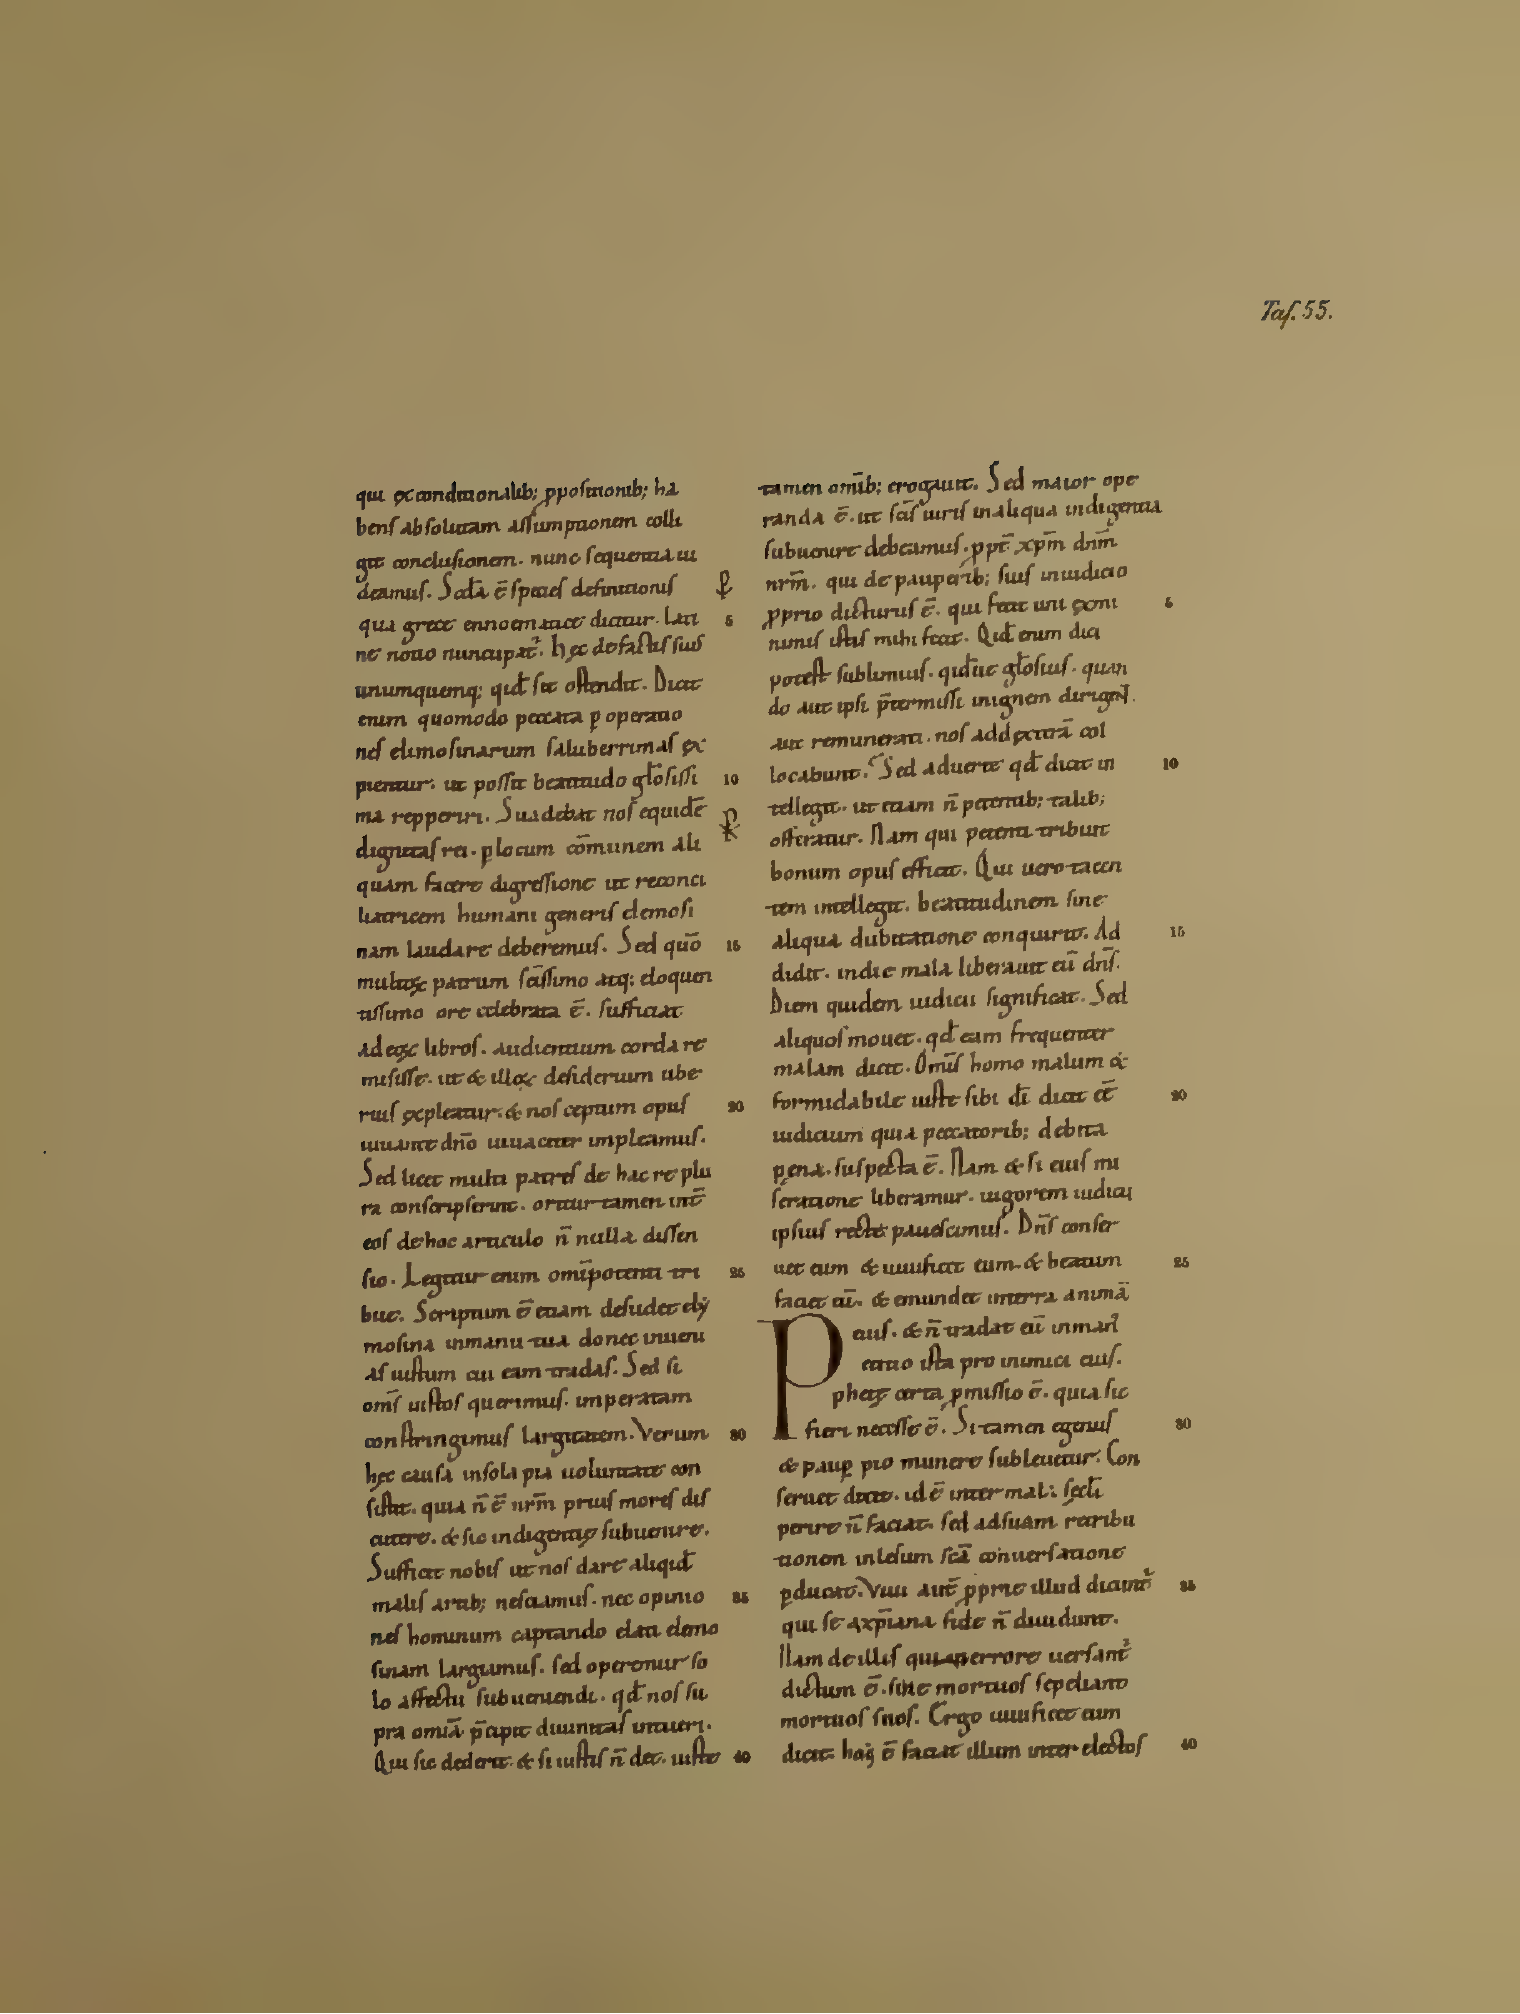 Taf. 55.
qui ex conditionalib; ppositionib; ha
bens absolutam assumptionem colli
git conclusionem. nunc sequentia ui
deamus. Scđa ē species definitionis
qua grece ennoematice dicitur. Lati
ne notio nuncupat. hęc de factis suis
unumquemq; qiđ sit ostendit. Dicit
enim quomodo peccata p operatio
nes elimosinarum saluberrimas ex
pientur. ut possit beatitudo głosissi
ma repperiri. Suadebat nos equidē
dignitas rei. p locum cōmunem ali
quam facere digressione ut reconci
liatricem humani generis elemosi
nam laudare deberemus. Sed quō
multoꝝ patrum scīssimo atq; eloquen
tissimo ore celebrata ē. sufficiat
ad eoꝝ libros. audientium corda re
misisse. ut & illoꝝ desiderium ube
rius expleatur. & nos ceptum opus
iuuante dnō uiuaciter impleamus.
Sed licet multi patres de hac re plu
ra conscripserint. oritur tamen int̄
eos de hoc articulo n̄ nulla dissen
sio. Legitur enim omīpotenti tri
bue. Scriptum ē etiam desudet ely
mosina in manu tua donec inueni
as iustum cui eam tradas. Sed si
om̄s iustos querimus. imperatam
constringimus largitatem. Verum
hęc causa in sola pia uoluntate con
sistit. quia n̄ ē nrm̄ prius mores dis
cutere. & sic indigentię subuenire.
Sufficit nobis ut nos dare aliqiđ
malis artib; nesciamus. nec opinio
nes hominum captando elati elemo
sinam largiamus. sed operemur so
lo affectu subueniendi. qđ nos su
pra omīa p̄cipit diuinitas intueri.
Qui sic dederit. & si iustis n̄ det. iuste
5
10
15
20
25
30
35
40
tamen om̄ib; erogauit. Sed maior ope
randa ē. ut scīs uiris in aliqua indigentia
subuenire debeamus. ppt̄ xpm̄ dnm̄
nrm̄. qui de pauperib; suis in iudicio
pprio dicturus ē. qui fecit uni ex mi
nimis istis mihi fecit. Qiđ enim dici
potest sublimius. qiđue głosius. quan
do aut ipsi p̄termissi in ignem dirigent.
aut remunerati. nos ad dexterā col
locabunt. Sed aduerte qđ dicit in
tellegit. ut etiam n̄ petentib; talib;
offeratur. Nam qui petenti tribuit
bonum opus efficit. Qui uero tacen
tem intellegit. beatitudinem sine
aliqua dubitatione conquirit. Ad
didit. in die mala liberauit eū dn̄s.
Diem quidem iudicii significat. Sed
aliquos mouet. qđ eam frequenter
malam dicit. Om̄is homo malum &
formidabile iuste sibi dī dicit eē
iudicium quia peccatorib; debita
pena. suspecta ē. Nam & si eius mi
seratione liberamur. uigorem iudicii
ipsius recte pauescimus. Dn̄s conser
uet eum & uiuificet eum. & beatum
faciet eū. & emundet in terra animā
eius. & n̄ tradat eū in man
Petitio ista pro inimici eius.
phetę certa pmissio ē. quia sic
fieri necesse ē. Si tamen egenus
& paup pio munere subleuetur. Con
seruet dicit. id ē inter mala secłi
perire n̄ faciat. sed ad suam retribu
tionem inlesum scā conuersatione
pducat. Viui aut̄ pprie illud dicunt
qui se a xpiana fide n̄ diuidunt.
Nam de illis qui errore uersant
dictum ē. sine mortuos sepeliant
mortuos suos. Ergo uiuificet eum
dicit. hoc ē faciat illum inter electos
5
10
15
20
25
30
35
40